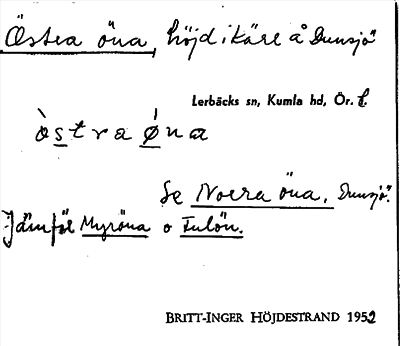 Östra öna, höjd i kärr å Dunsjö
Lerbäcks sn, Kumla hd, Ör. l.
òstra ǿna
Se Norra öna, Dunsjö.
Jämför Myröna o Fulön.
BRITT-INGER HÖJDESTRAND 1952